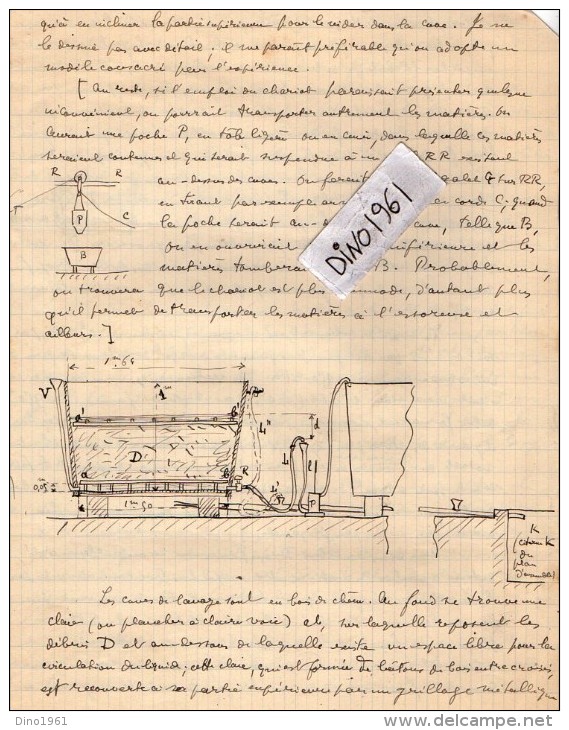 qu'à en incliner la partie supérieure pour le vider dans la cuve. Je ne
le dessine pas avec détail; il me paraît préférable qu'on adopte un
modèle consacré par l'expérience.
[Au reste, si l'emploi du chariot paraissait présenter quelque
inconvénient, on pourrait transporter autrement les matières. On
aurait une poche P, en tôle légère ou en cuir, dans laquelle les matières
seraient contenues et qui serait suspendue à un RR existant
au-dessus des cuves. On ferait galet G sur RR,
en tirant par exemple corde C; quand
la poche serait au- cuve, telle que B,
on en ouvrirait inférieure et les
matières tomberaient B. Probablement,
on trouvera que le chariot est plus commode, d'autant plus
qu'il permet de transporter les matières à l'essoreuse et
ailleurs.]
DINO1961
R
R
T
P
C
B
1m64
V
1m
a'
b'
D
L"
d
L
l
a
b
R
L'
0,05
1m50
P
K
(citerne K
du
plan
d'ensemble)
Les cuves de lavage sont en bois de chêne. Au fond se trouve une
claie (ou plancher à claire voie) ab, sur laquelle reposent les
débris D et au-dessous de laquelle existe un espace libre pour la
circulation du liquide; cette claie, qui est formée de bâtons de bois entre croisés,
est recouverte à sa partie supérieure par un grillage métallique
Dino1961